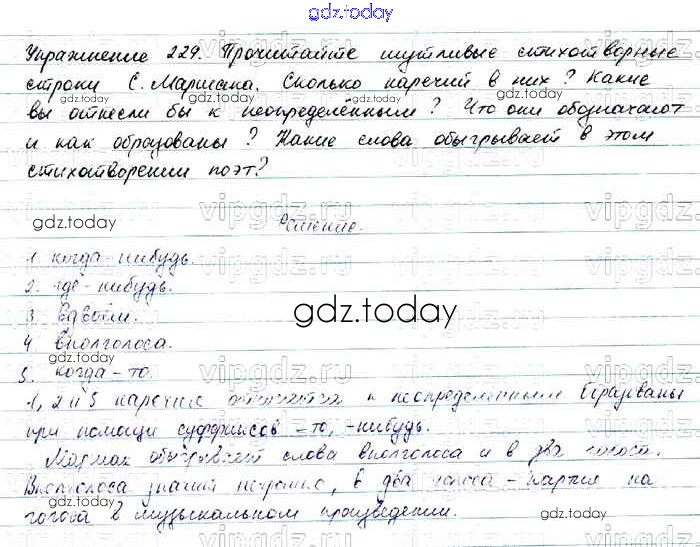 gdz.today
Упражнение 229. Прочитайте шутливые стихотворные
строки С. Маршака. Сколько наречий в них? Какие
вы отнесли бы к неопределённым? Что они обозначают
и как образованы? Какие слова обыгрывает в этом
стихотворении поэт?
Решение.
1. когда-нибудь.
2. где-нибудь.
3. вдвоём.
4 вполголоса.
5. когда-то.
1, 2 и 5 наречие относятся к неопределенным. Образованы
при помощи суффиксов -то, -нибудь.
Маршак обыгрывает слова вполголоса и в два голоса.
Вполголоса значит негромко, в два голоса - партия на
голоса в музыкальном произведении.
gdz.today
gdz.today
gdz.today
gdz.today
gdz.today
gdz.today
gdz.today
gdz.today
gdz.today
vipgdz.ru